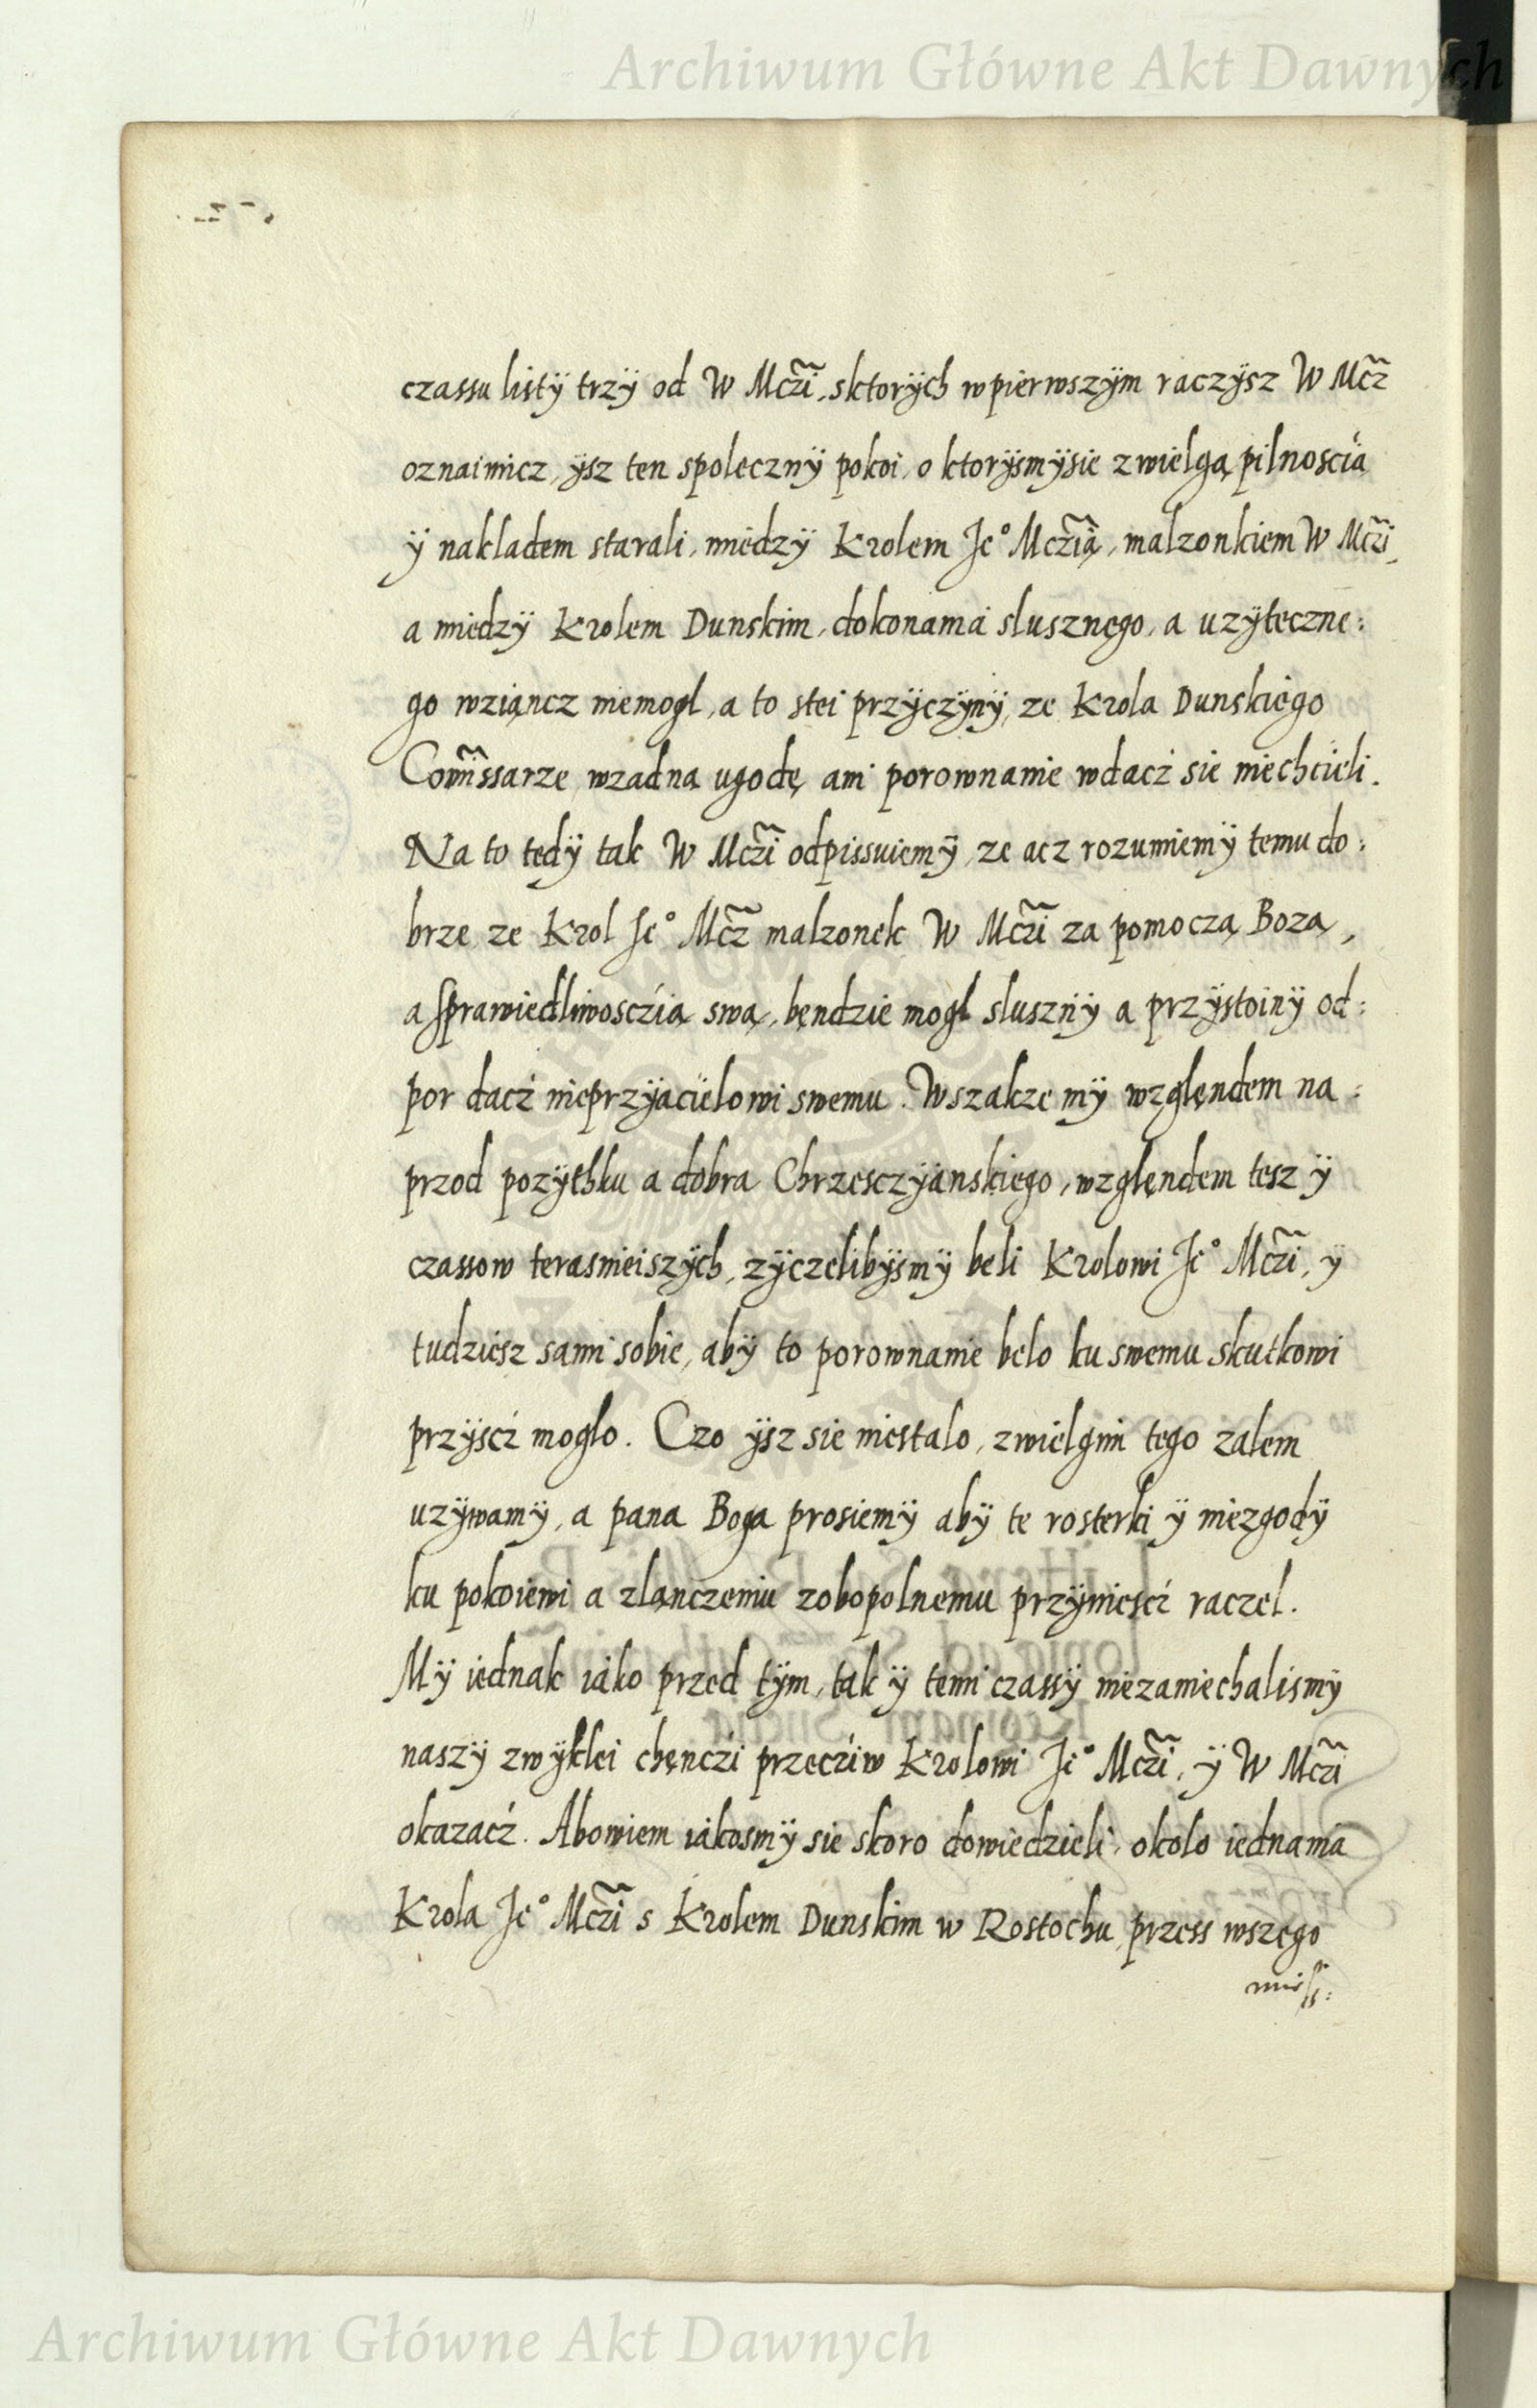 Archiwum Główne Akt Dawnych
czassu listÿ trzÿ od W Mczi̴, sktorÿch wpierwszÿm raczÿsz W Mcz̴
oznaimicz, ÿsz ten spolecznÿ pokoi, o ktorÿsmÿsie zwielgą pilnoscią
ÿ nakladem starali, miedzÿ Krolem Je° Mczią̴, malzonkiem W Mczi̴,
a miedzÿ Krolem Dunskim, dokonania slusznego, a uzÿteczne:
go wziąncz niemogl, a to stei przÿczÿnÿ, ze Krola Dunskiego
Com̃issarze, wzadną ugodę ani porownanie wdacż sie niechcieli.
Na to tedÿ tak W Mczi̴ odpissuiemÿ, ze acz rozumiemÿ temu do:
brze, ze Krol Je° Mcz̴ malzonek W Mczi̴ za pomoczą Bozą,
a sprawiedliwosczią swą, bęndzie mogl slusznÿ a przÿstoinÿ od:
por dacź nieprzÿacielowi swemu. Wszakze mÿ wzglęndem na:
przod pozÿthku a dobra Chrzesczÿanskiego, wzglęndem tesz ÿ
czassow terasnieiszÿch, zÿczelibÿsmÿ beli Krolowi Je° Mczi̴, ÿ
tudziesz sami sobie, abÿ to porownanie belo ku swemu skutkowi
przÿscź moglo. Czo ÿsz sie niestalo, zwielgim tego zalem
uzÿwamÿ, a pana Boga prosiemÿ abÿ te rosterki ÿ niezgodÿ
ku pokoiewi a zlanczeniu zobopolnemu przÿniescź raczel.
Mÿ iednak iako przed tÿm, tak ÿ temi czassÿ niezaniechalismÿ
naszÿ zwÿklei chęnczi przecziw Krolowi Je° Mczi̴, ÿ W Mczi̴
okazacź. Abowiem iakosmÿ sie skoro dowiedzieli, okolo iednania
Krola Je° Mczi̴ s Krolem Dunskim w Rostochu, przess wszego
miess:
Archiwum Główne Akt Dawnych